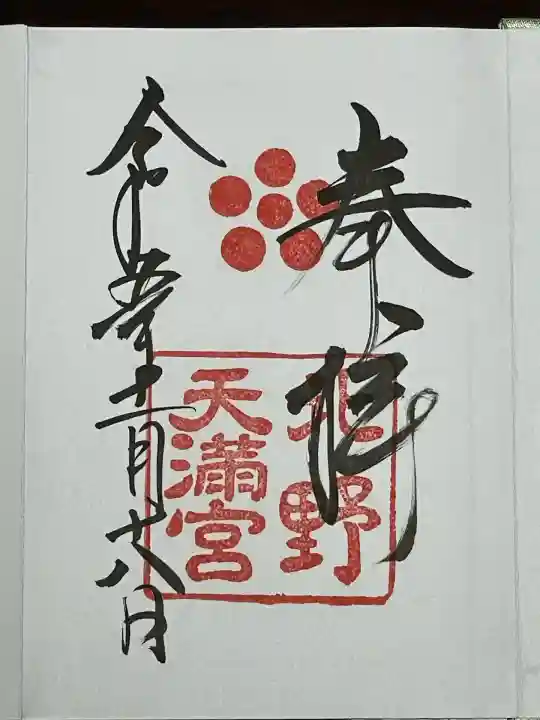 奉拝
北野
天満宮
令和五年十一月廿八日